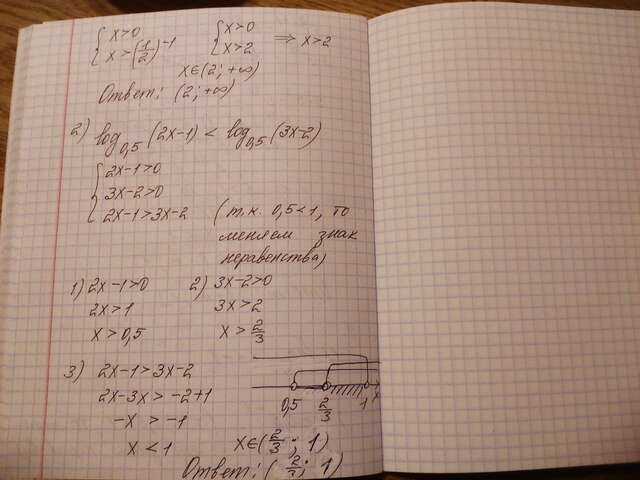 {x>0 {x>0 ⇒ x>2
{x>(1/2)^-1 {x>2
x∈(2; +∞)
Ответ: (2; +∞)
2) log_0,5 (2x-1) < log_0,5 (3x-2)
{2x-1>0
{3x-2>0
{2x-1>3x-2 (т.к. 0,5<1, то
меняем знак
неравенства)
1) 2x-1>0 2) 3x-2>0
2x>1 3x>2
x>0,5 x>2/3
3) 2x-1>3x-2
2x-3x>-2+1
-x > -1
x < 1
0,5 2/3 1 x
x∈(2/3; 1)
Ответ: (2/3; 1)